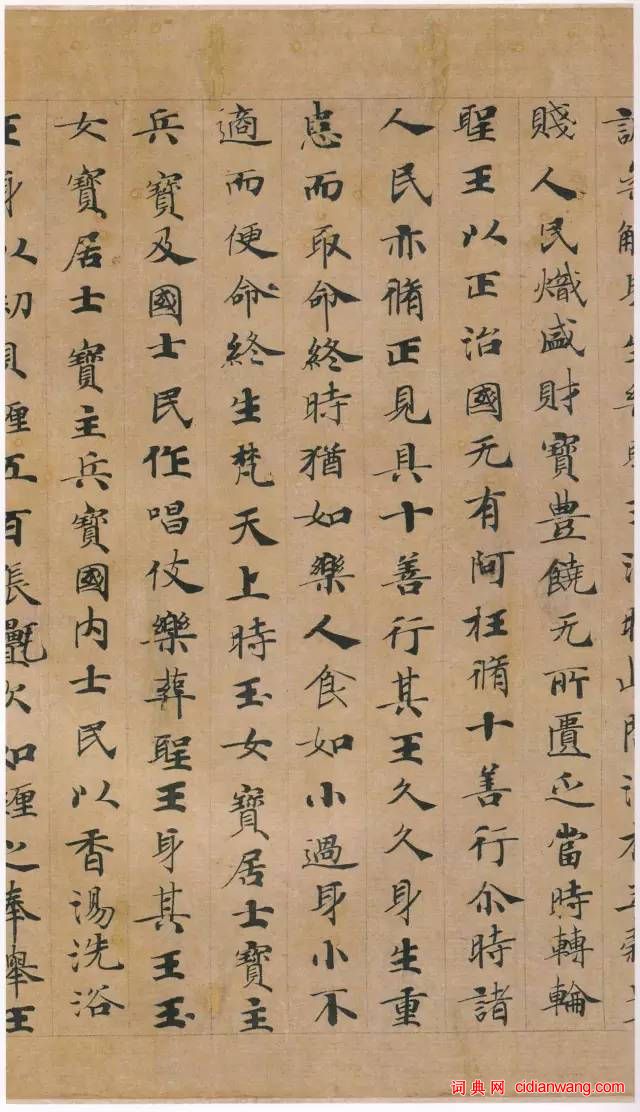 賤人民熾盛財寶豊饒无所匱乏當時轉輪
聖王以正治國无有阿枉脩十善行尒時諸
人民亦脩正見具十善行其王久久身生重
患而取命終時猶如樂人食如小過身小不
適而便命終生梵天上時玉女寶居士寶主
兵寶及國士民作唱伎樂葬聖王身其王玉
女寶居士寶主兵寶國内士民以香湯洗浴
王身以劫貝纏五百張㲲次如纏之奉舉王
词典网 cidianwang.com